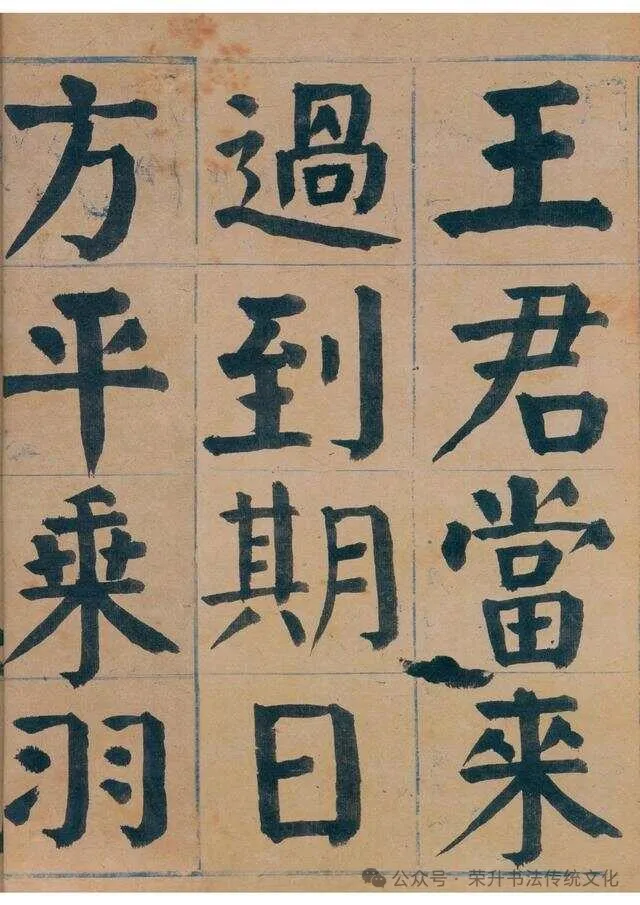 王君當來
過到期日
方平乗羽
公众号 · 荣升书法传统文化